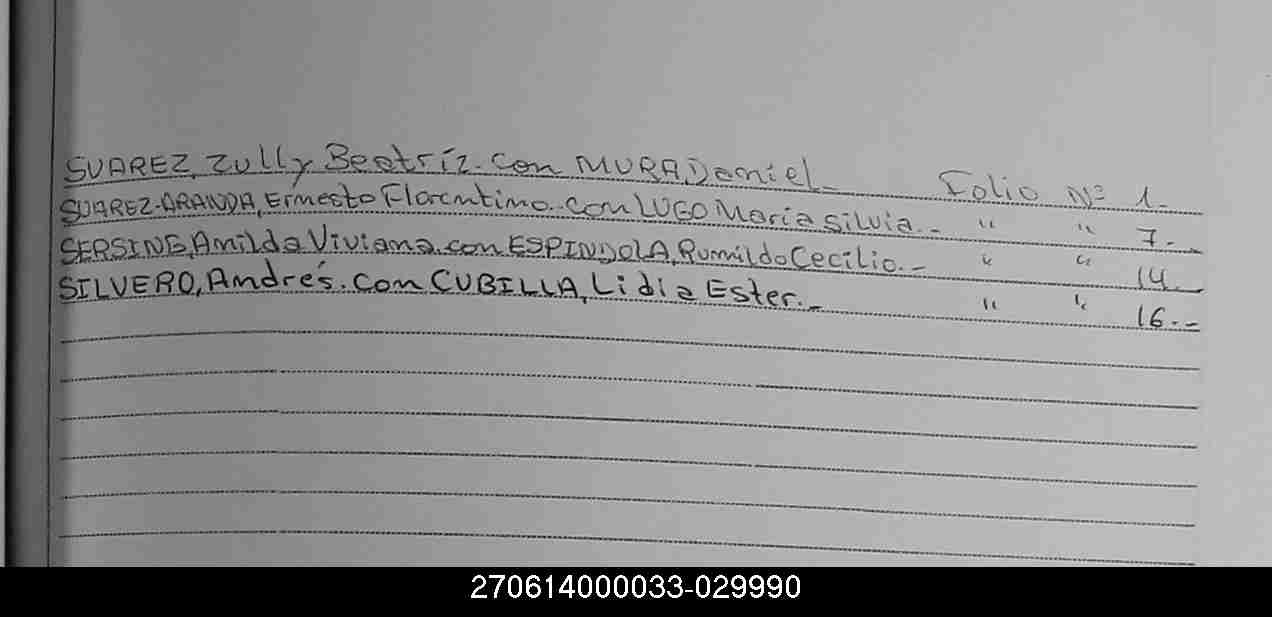 SUAREZ, Zully Beatríz. con MURA, Daniel._ Folio Nº 1.-
SUAREZ-ARANDA, Ernesto Florentino. con LUGO Maria Silvia.- " " 7.-
SERSING, Anilda Viviana. con ESPINDOLA, Rumildo Cecilio.- " " 14.-
SILVERO, Andrés. con CUBILLA, Lidia Ester.- " " 16.-
270614000033-029990